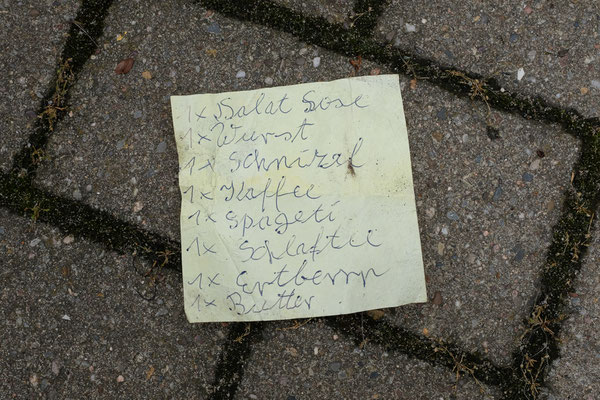 1x Salat Sose
1x Wurst
1x Schnizel
1x Kaffee
1x Spageti
1x Schlaftee
1x Ertberrn
1x Butter